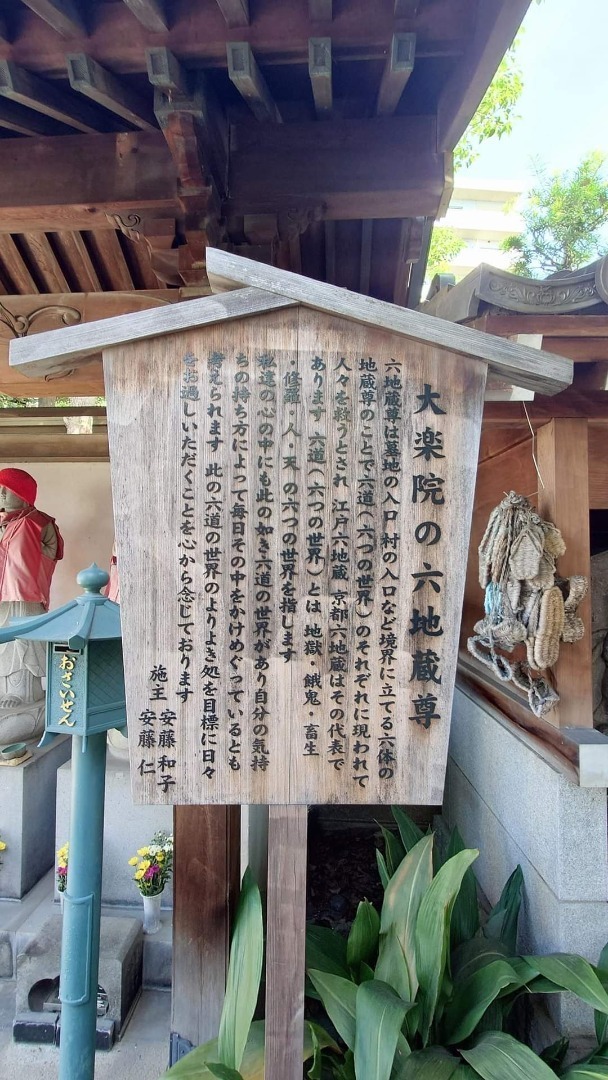 大楽院の六地蔵尊
六地蔵尊は墓地の入口 村の入口など境界に立てる六体の
地蔵尊のことで六道（六つの世界）のそれぞれに現われて
人々を救うとされ 江戸六地蔵 京都六地蔵はその代表で
あります 六道（六つの世界）とは 地獄・餓鬼・畜生
・修羅・人・天 の六つの世界を指します
私達の心の中にも此の如き六道の世界があり自分の気持
ちの持ち方によって毎日その中をかけめぐっているとも
考えられます 此の六道の世界のよりよき処を目標に日々
をお過しいただくことを心から念じております
施主 安藤 和子
安藤 仁
おさいせん